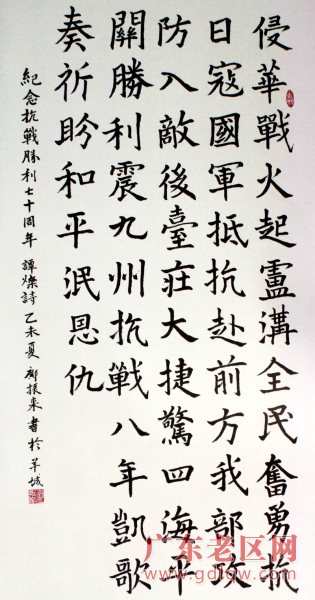 侵華戰火起盧溝全民奮勇抗
日寇國軍抵抗赴前方我部攻
防入敵後臺莊大捷驚四海平
關勝利震九州抗戰八年凱歌
奏祈盼和平泯恩仇
紀念抗戰勝利七十周年 譚燦詩 乙未夏 振來書於羊城
广东老区网
www.gdlqw.com